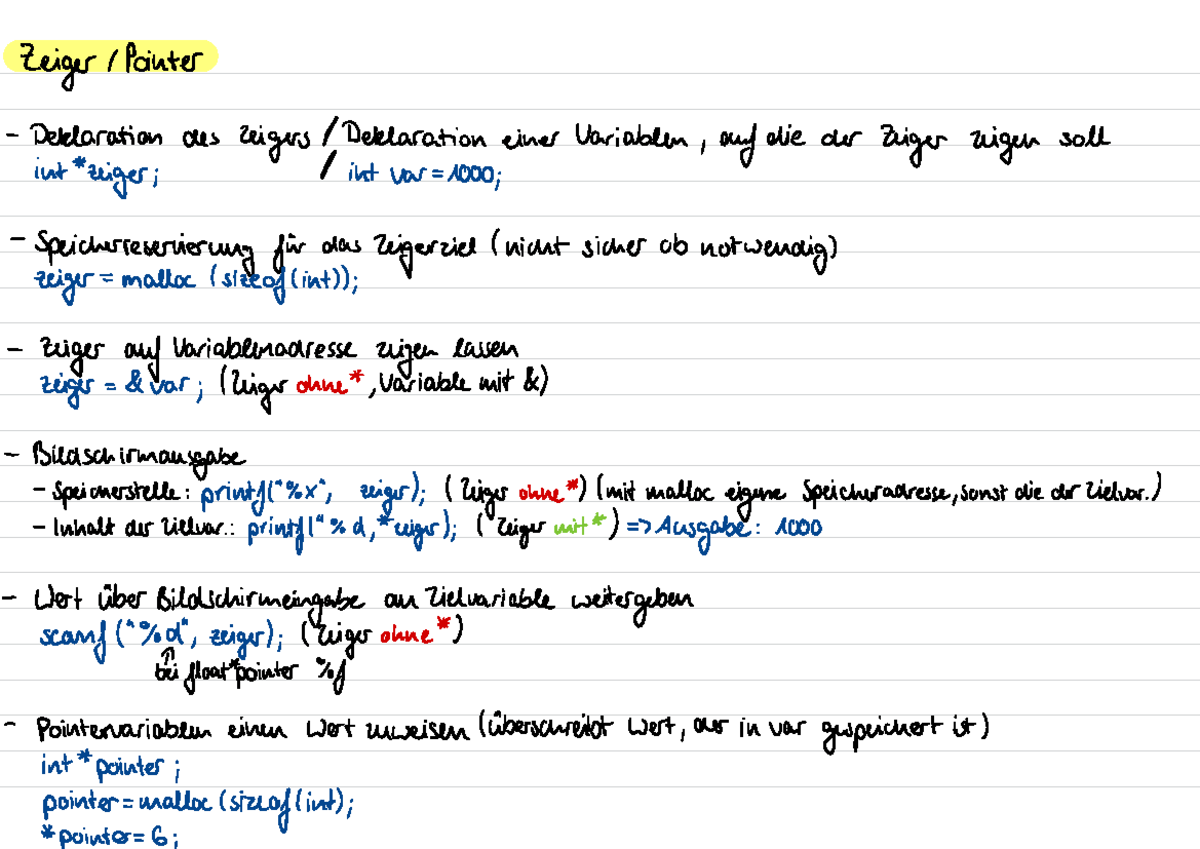 Zeiger / Pointer
- Deklaration des Zeigers / Deklaration einer Variablen, auf die der Zeiger zeigen soll
int *zeiger; / int var = 1000;
- Speicherreservierung für das Zeigerziel (nicht sicher ob notwendig)
zeiger = malloc (sizeof(int));
- Zeiger auf Variablenadresse zeigen lassen
zeiger = & var; (Zeiger ohne *, Variable mit &)
- Bildschirmausgabe
- Speicherstelle: printf("%x", zeiger); (Zeiger ohne *) (mit malloc eigene Speicheradresse, sonst die der Zielvar.)
- Inhalt der Zielvar.: printf("%d, *zeiger); (Zeiger mit *) => Ausgabe: 1000
- Wert über Bildschirmeingabe an Zielvariable weitergeben
scanf ("%d", zeiger); (Zeiger ohne *)
↑
bei float*pointer %f
- Pointervariablen einen Wert zuweisen (überschreibt Wert, der in var gespeichert ist)
int *pointer;
pointer = malloc (sizeof(int);
*pointer = 6;